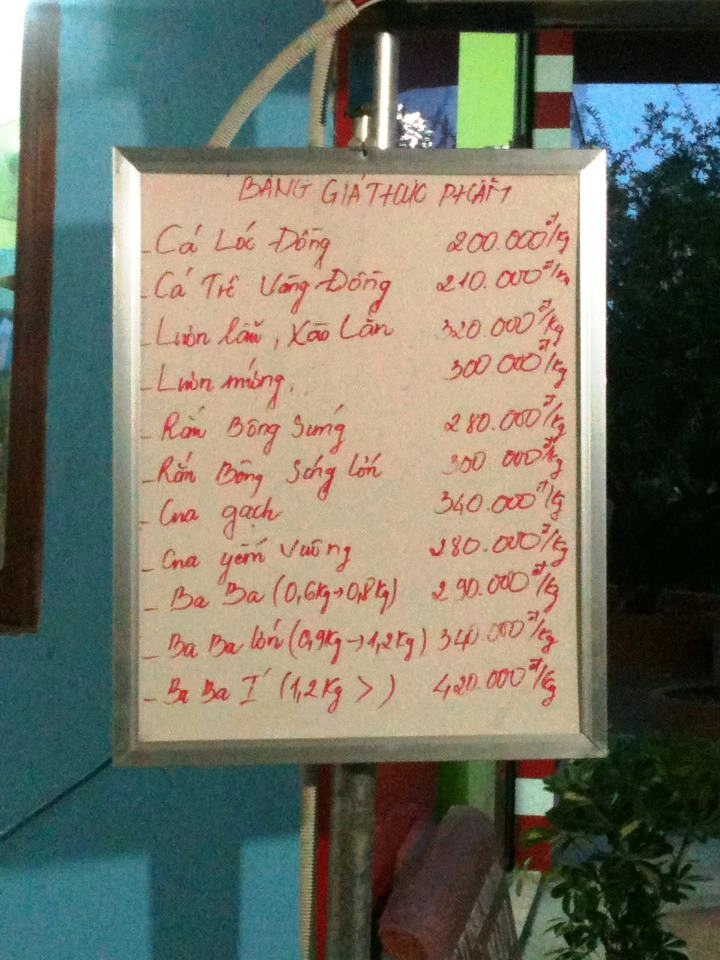 BẢNG GIÁ THỰC PHẨM
- Cá Lóc Đồng 200.000đ/kg
- Cá Trê Vàng Đồng 210.000đ/kg
- Lươn lẩu, Xào Lăn 320.000đ/kg
- Lươn nướng. 300.000đ/kg
- Rắn Bông Súng 280.000đ/kg
- Rắn Bông Súng lớn 300.000đ/kg
- Cua gạch 340.000đ/kg
- Cua yếm vuông 280.000đ/kg
- Ba Ba (0,6kg→0,8kg) 290.000đ/kg
- Ba Ba lớn (0,9kg→1,2kg) 340.000đ/kg
- Ba Ba I (1,2kg >) 420.000đ/kg